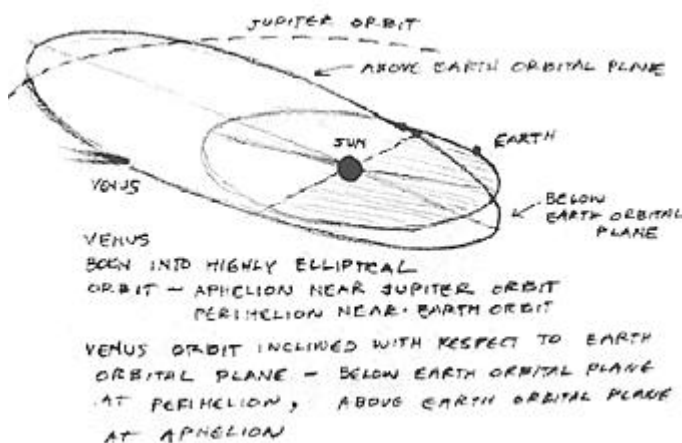 JUPITER ORBIT
ABOVE EARTH ORBITAL PLANE
EARTH
SUN
VENUS
BELOW
EARTH ORBITAL
PLANE
VENUS
BORN INTO HIGHLY ELLIPTICAL
ORBIT - APHELION NEAR JUPITER ORBIT
PERIHELION NEAR EARTH ORBIT
VENUS ORBIT INCLINED WITH RESPECT TO EARTH
ORBITAL PLANE - BELOW EARTH ORBITAL PLANE
AT PERIHELION, ABOVE EARTH ORBITAL PLANE
AT APHELION